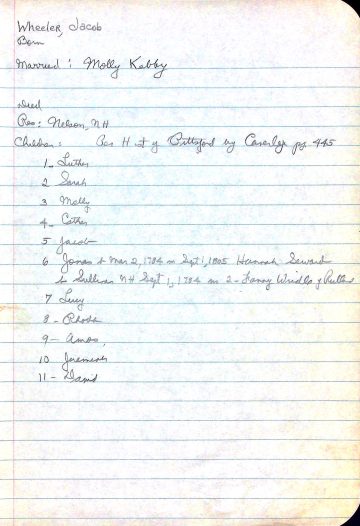 Wheeler, Jacob
Born
Married: Molly Kebby
Died
Res: Nelson, NH
Children: Res Hist of Pittsford by Caverly pg 445
1- Luther
2 Sarah
3 Molly
4- Esther
5 Jacob
6 Jonas b Mar 2, 1784 m Sept 1, 1805 Hannah Seward
b Sullivan NH Sept 1, 1784 m 2- Fanny of
7 Lucy
8- Rhoda
9- Amos,
10 Jeremiah
11- David